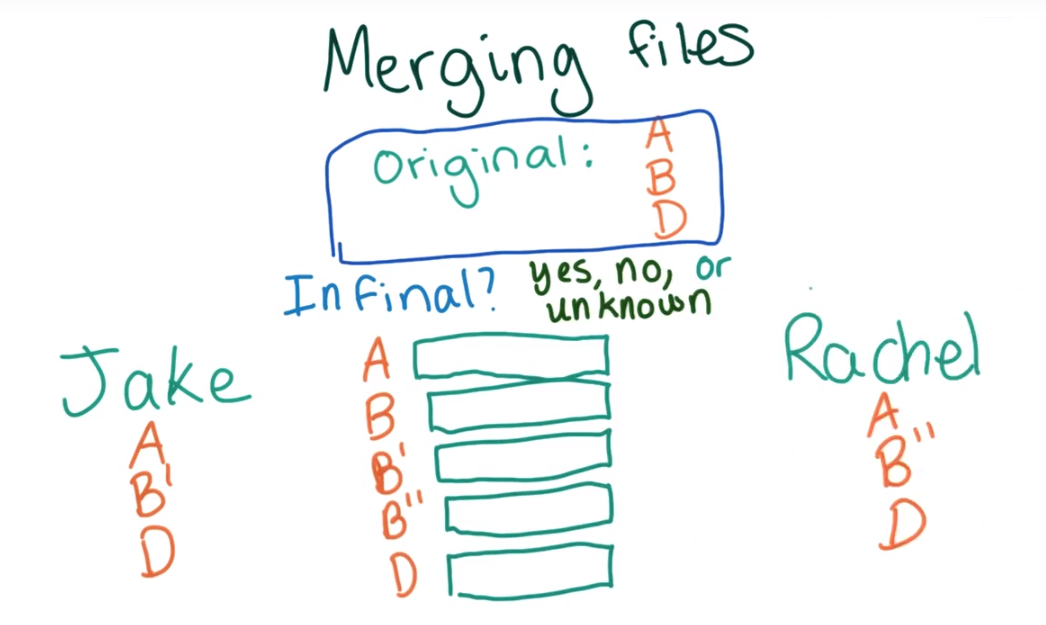 Merging files
Original: A
B
D
In final? yes, no, or
unknown
Jake
A
B'
D
A
B
B'
B"
D
Rachel
A
B"
D